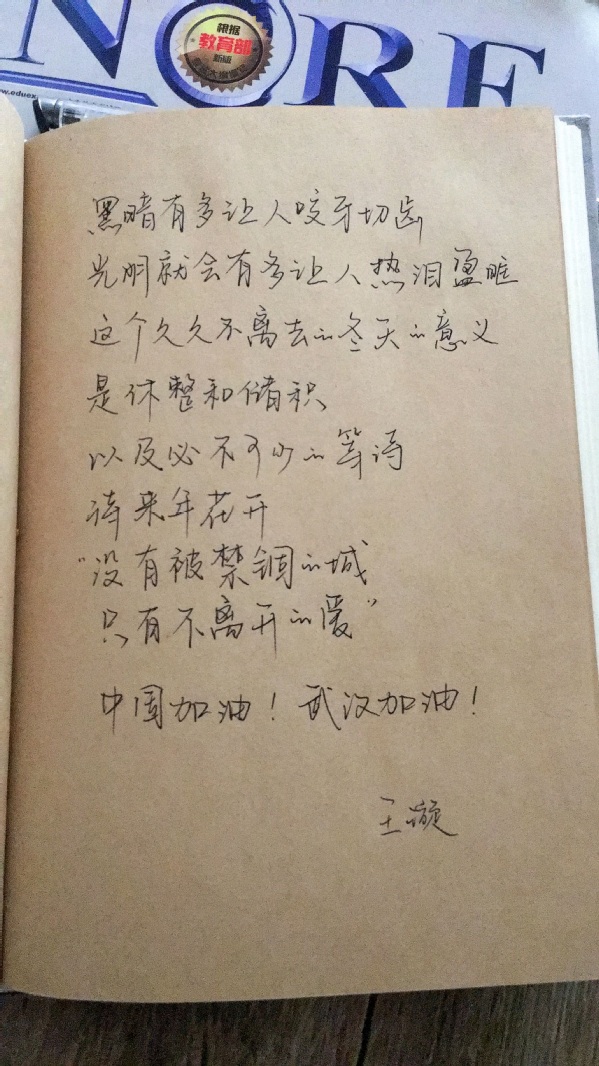 NCRE
根据
教育部
www.eduex
黑暗有多让人咬牙切齿
光明就会有多让人热泪盈眶
这个久久不离去的冬天的意义
是休整和储积
以及必不可少的等待
待来年花开
“没有被禁锢的城
只有不离开的爱”
中国加油！武汉加油！
王漩